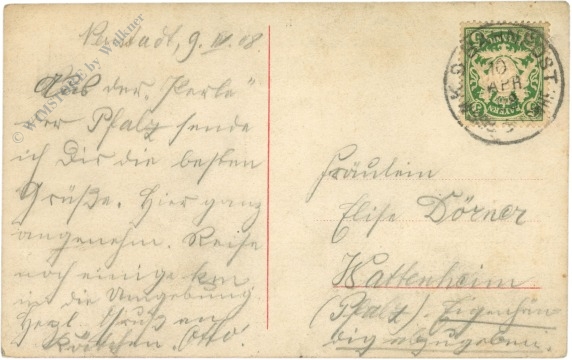 Neustadt, 9. IV. 08.
Aus der "Perle"
der Pfalz sende
ich Dir die besten
Grüße. Hier ganz
angenehm. Reise
noch einige km
in die Umgebung
Herzl. Gruß an
Otto.
K. B. BAHNPOST
10
APR
BAYERN
Fräulein
Elise Dörner
Wattenheim
(Pfalz). Eigenhän
dig abzugeben.
© WIMSTORE by Walkner